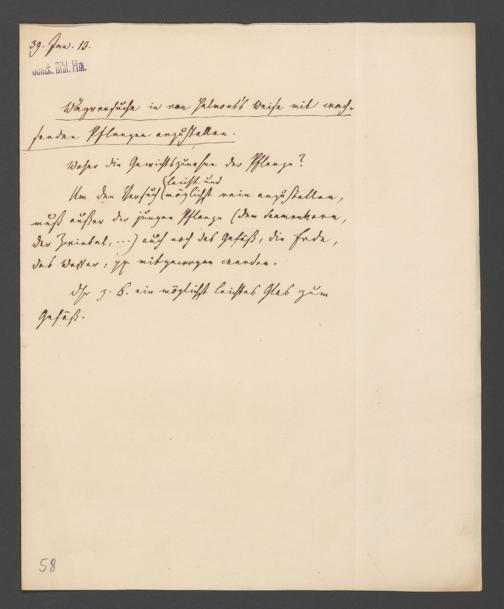 39. Jan. 13.
Senck. Bibl. Ffm.
Wägversuche in van Helmont's Weise mit wach-
senden Pflanzen anzustellen.
Woher die Gewichtszunahme der Pflanze?
leicht und
Um den Versuch möglichst rein anzustellen,
muß außer der jungen Pflanze (dem Samenkorn,
der Zwiebel, ...) auch noch das Gefäß, die Erde,
das Wasser, pp mitgewogen werden.
z. B. ein möglichst leichtes Glas zum
Gefäß.
58